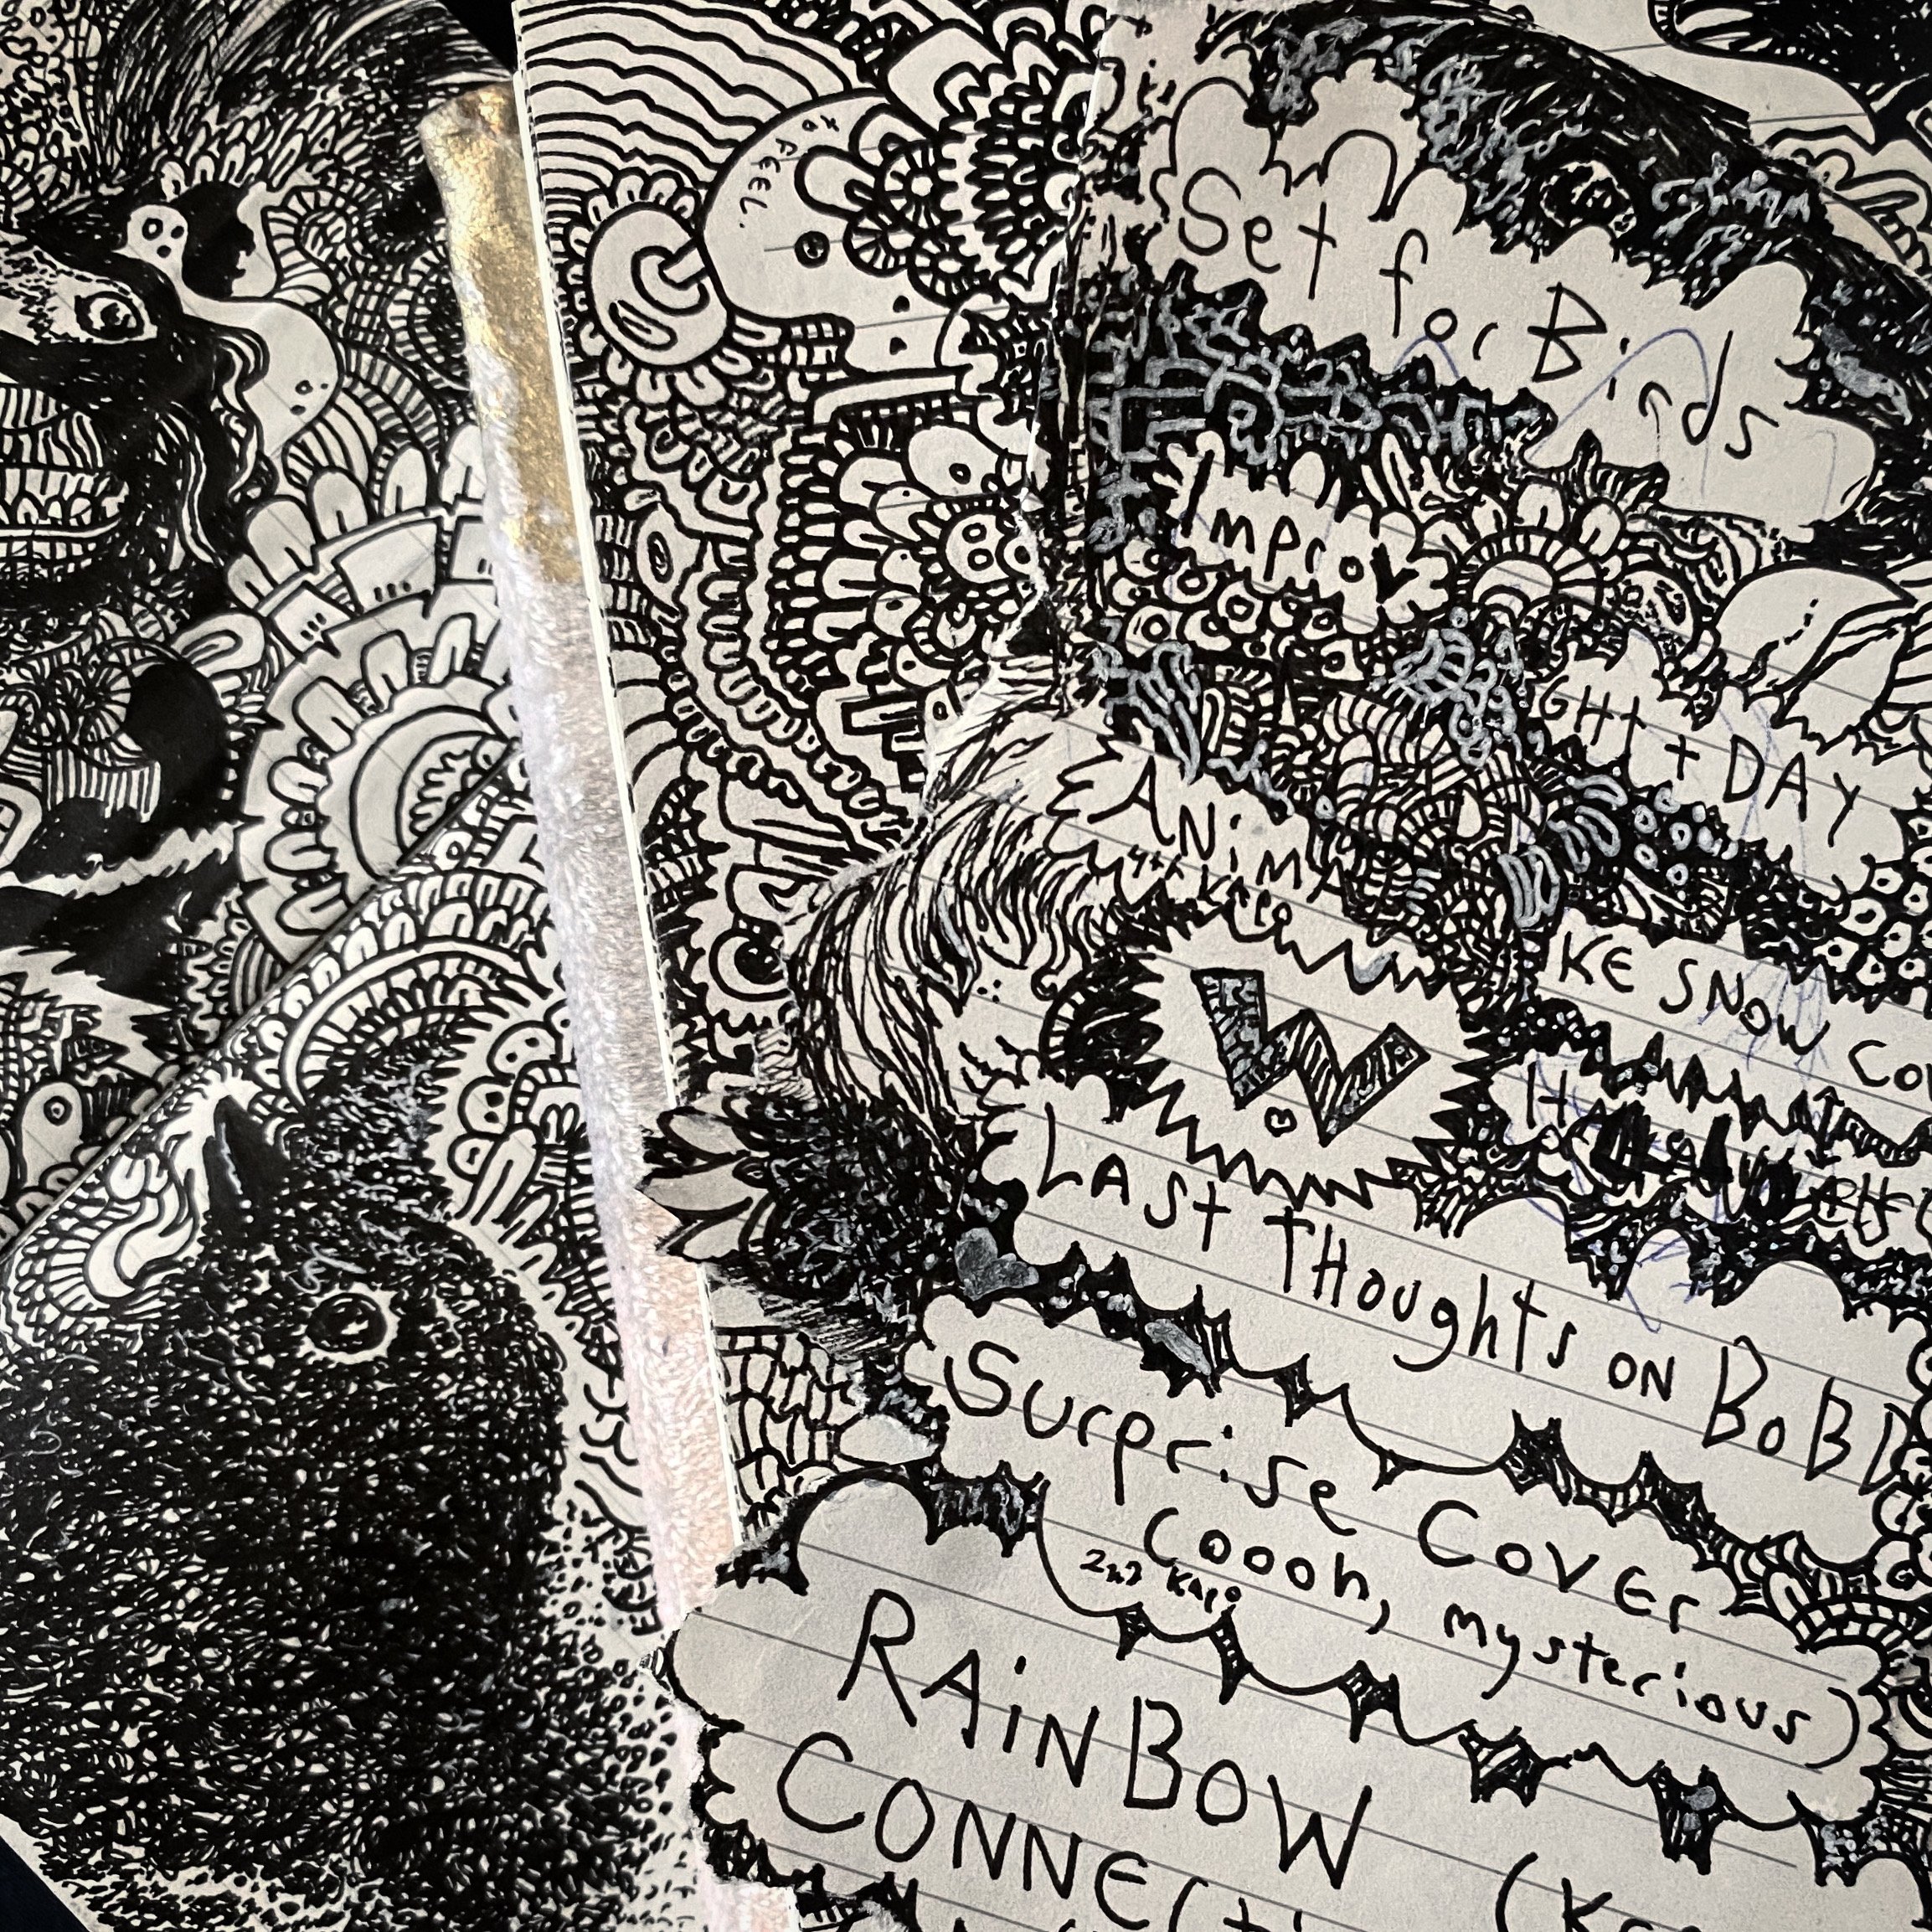 FEEL.
Set for Birds
Improv
GHT + DAY
ANiMA
KE SNOW CO
W
LAST THoughts on BoBD
Surprise Cover
(oooh, mysterious)
2nd Kapo
RAiNBOW
CONNECti